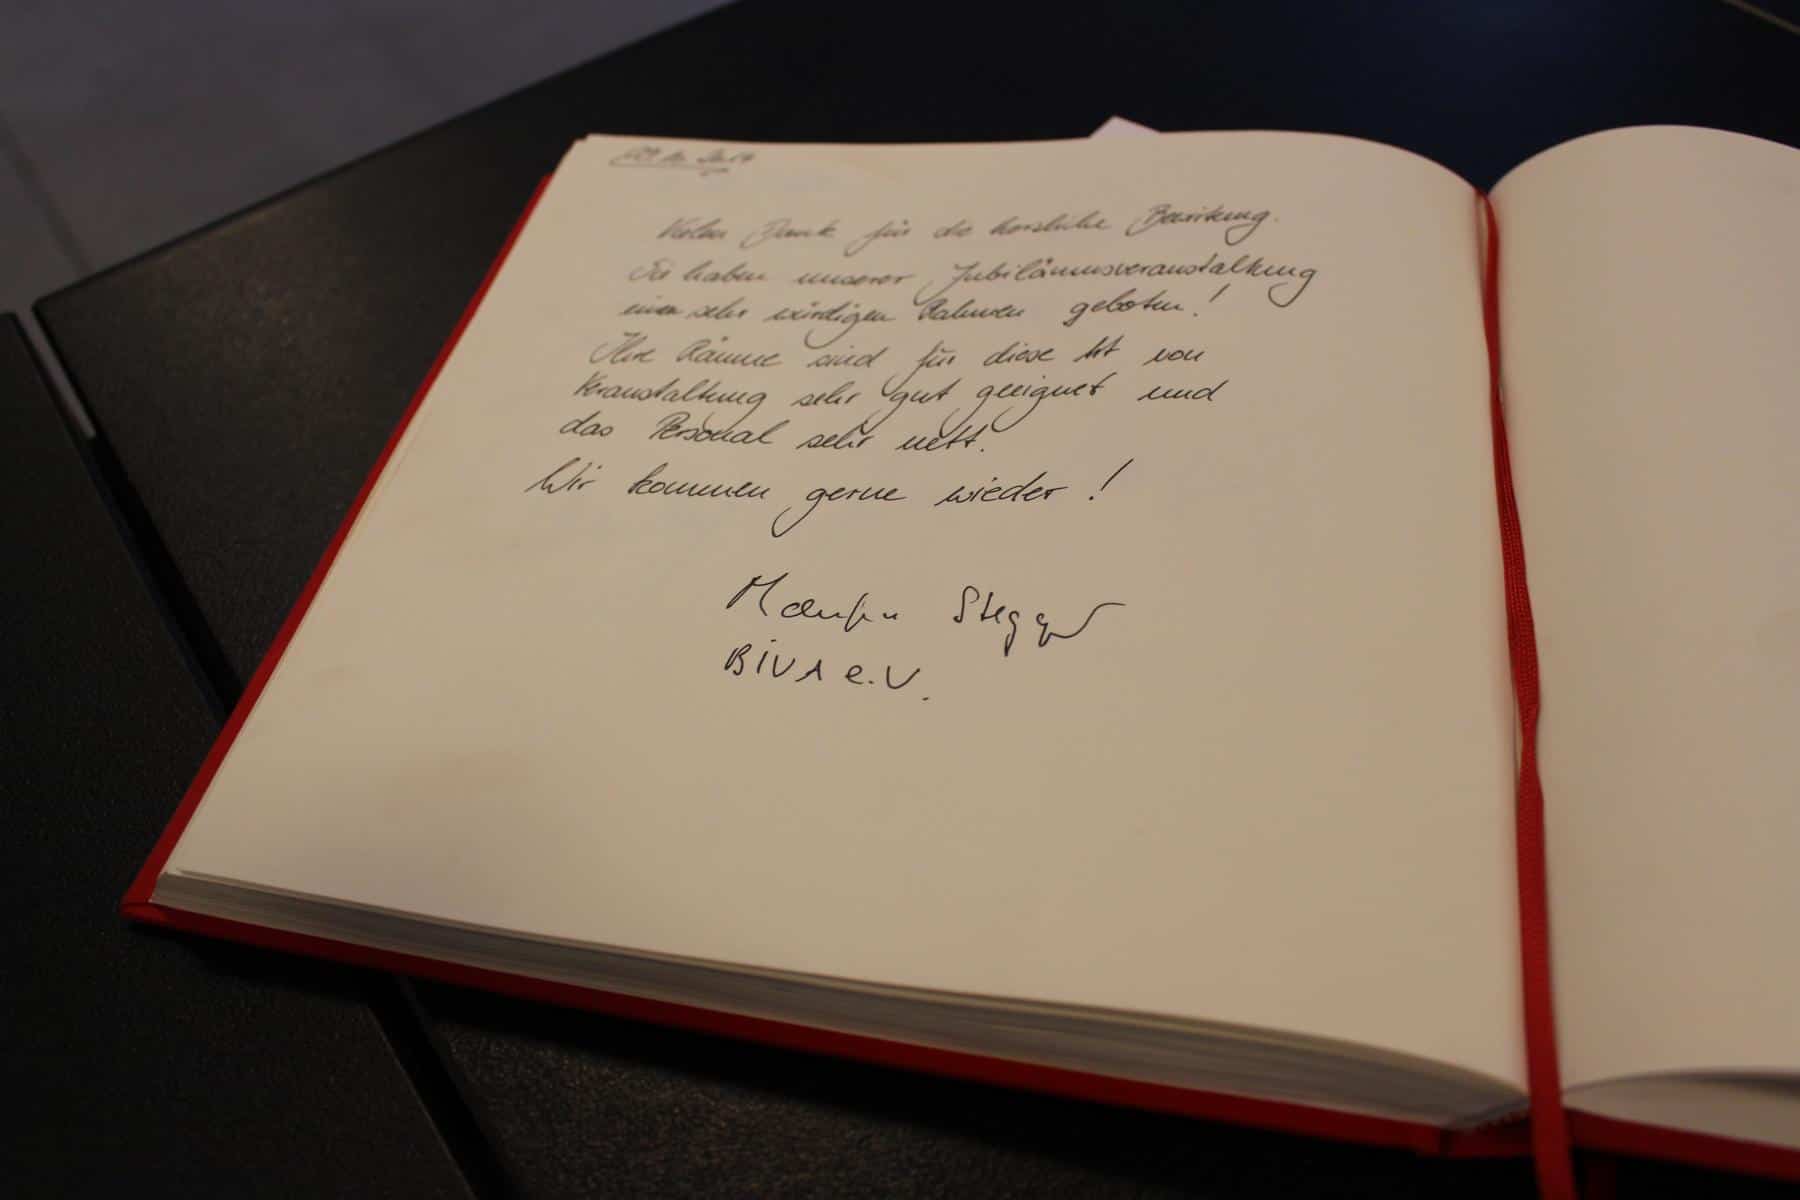 Vielen Dank für die herzliche Bewirtung.
Sie haben unserer Jubiläumsveranstaltung
einen sehr würdigen Rahmen geboten!
Ihre Räume sind für diese Art von
Veranstaltung sehr gut geeignet und
das Personal sehr nett.
Wir kommen gerne wieder!
BIVA e.V.